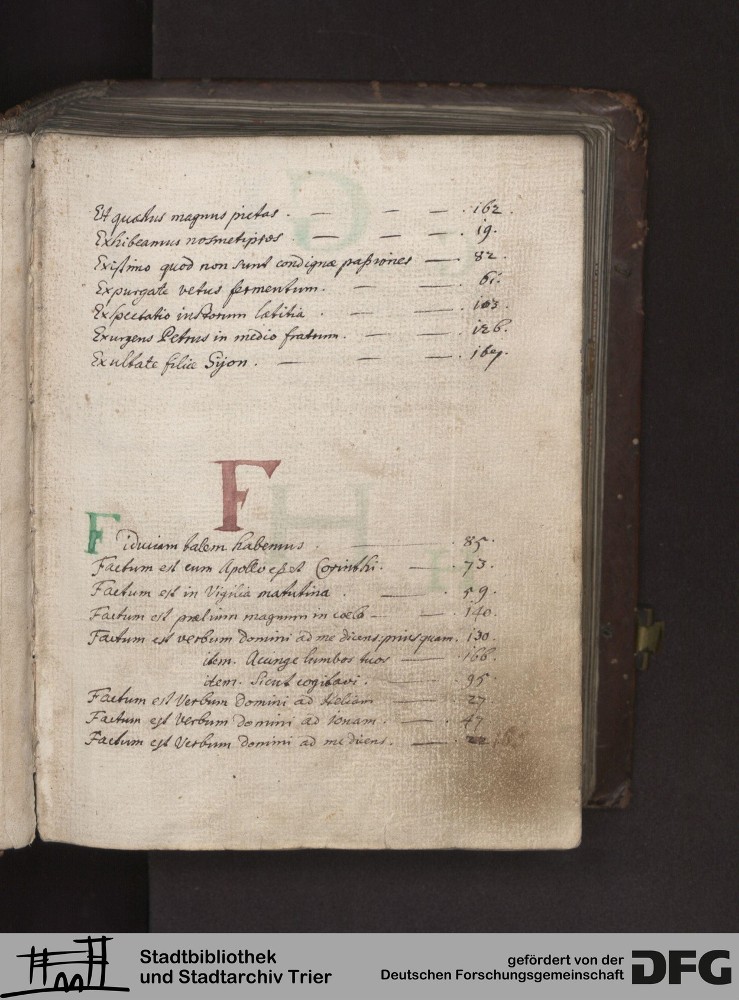 Et quartus magnus pietas. — — — . 162.
Exhibeamus nosmetipsos — — — . 19.
Existimo quod non sunt condignæ passiones — . 82.
Expurgate vetus fermentum. — — . 61.
Expectatio iustorum lætitia . — — . 103.
Exurgens Petrus in medio fratrum. — — . 126.
Exultate filiæ Sijon . — — — .
F
Fiduciam talem habemus . — — 85.
Factum est cum Apollo esset Corinthi. — . 73.
Factum est in Vigilia matutina . — . 59.
Factum est prælium magnum in cœlo — — . 140.
Factum est verbum Domini ad me dicens, priusquam. 130.
item. Accinge lumbos tuos — . 166.
idem. Sicut cogitavi. — . 95.
Factum est Verbum Domini ad Heliam — . 27.
Factum est Verbum Domini ad Ionam. — . 47
Factum est Verbum Domini ad me dicens. —
Stadtbibliothek
und Stadtarchiv Trier
gefördert von der
Deutschen Forschungsgemeinschaft
DFG